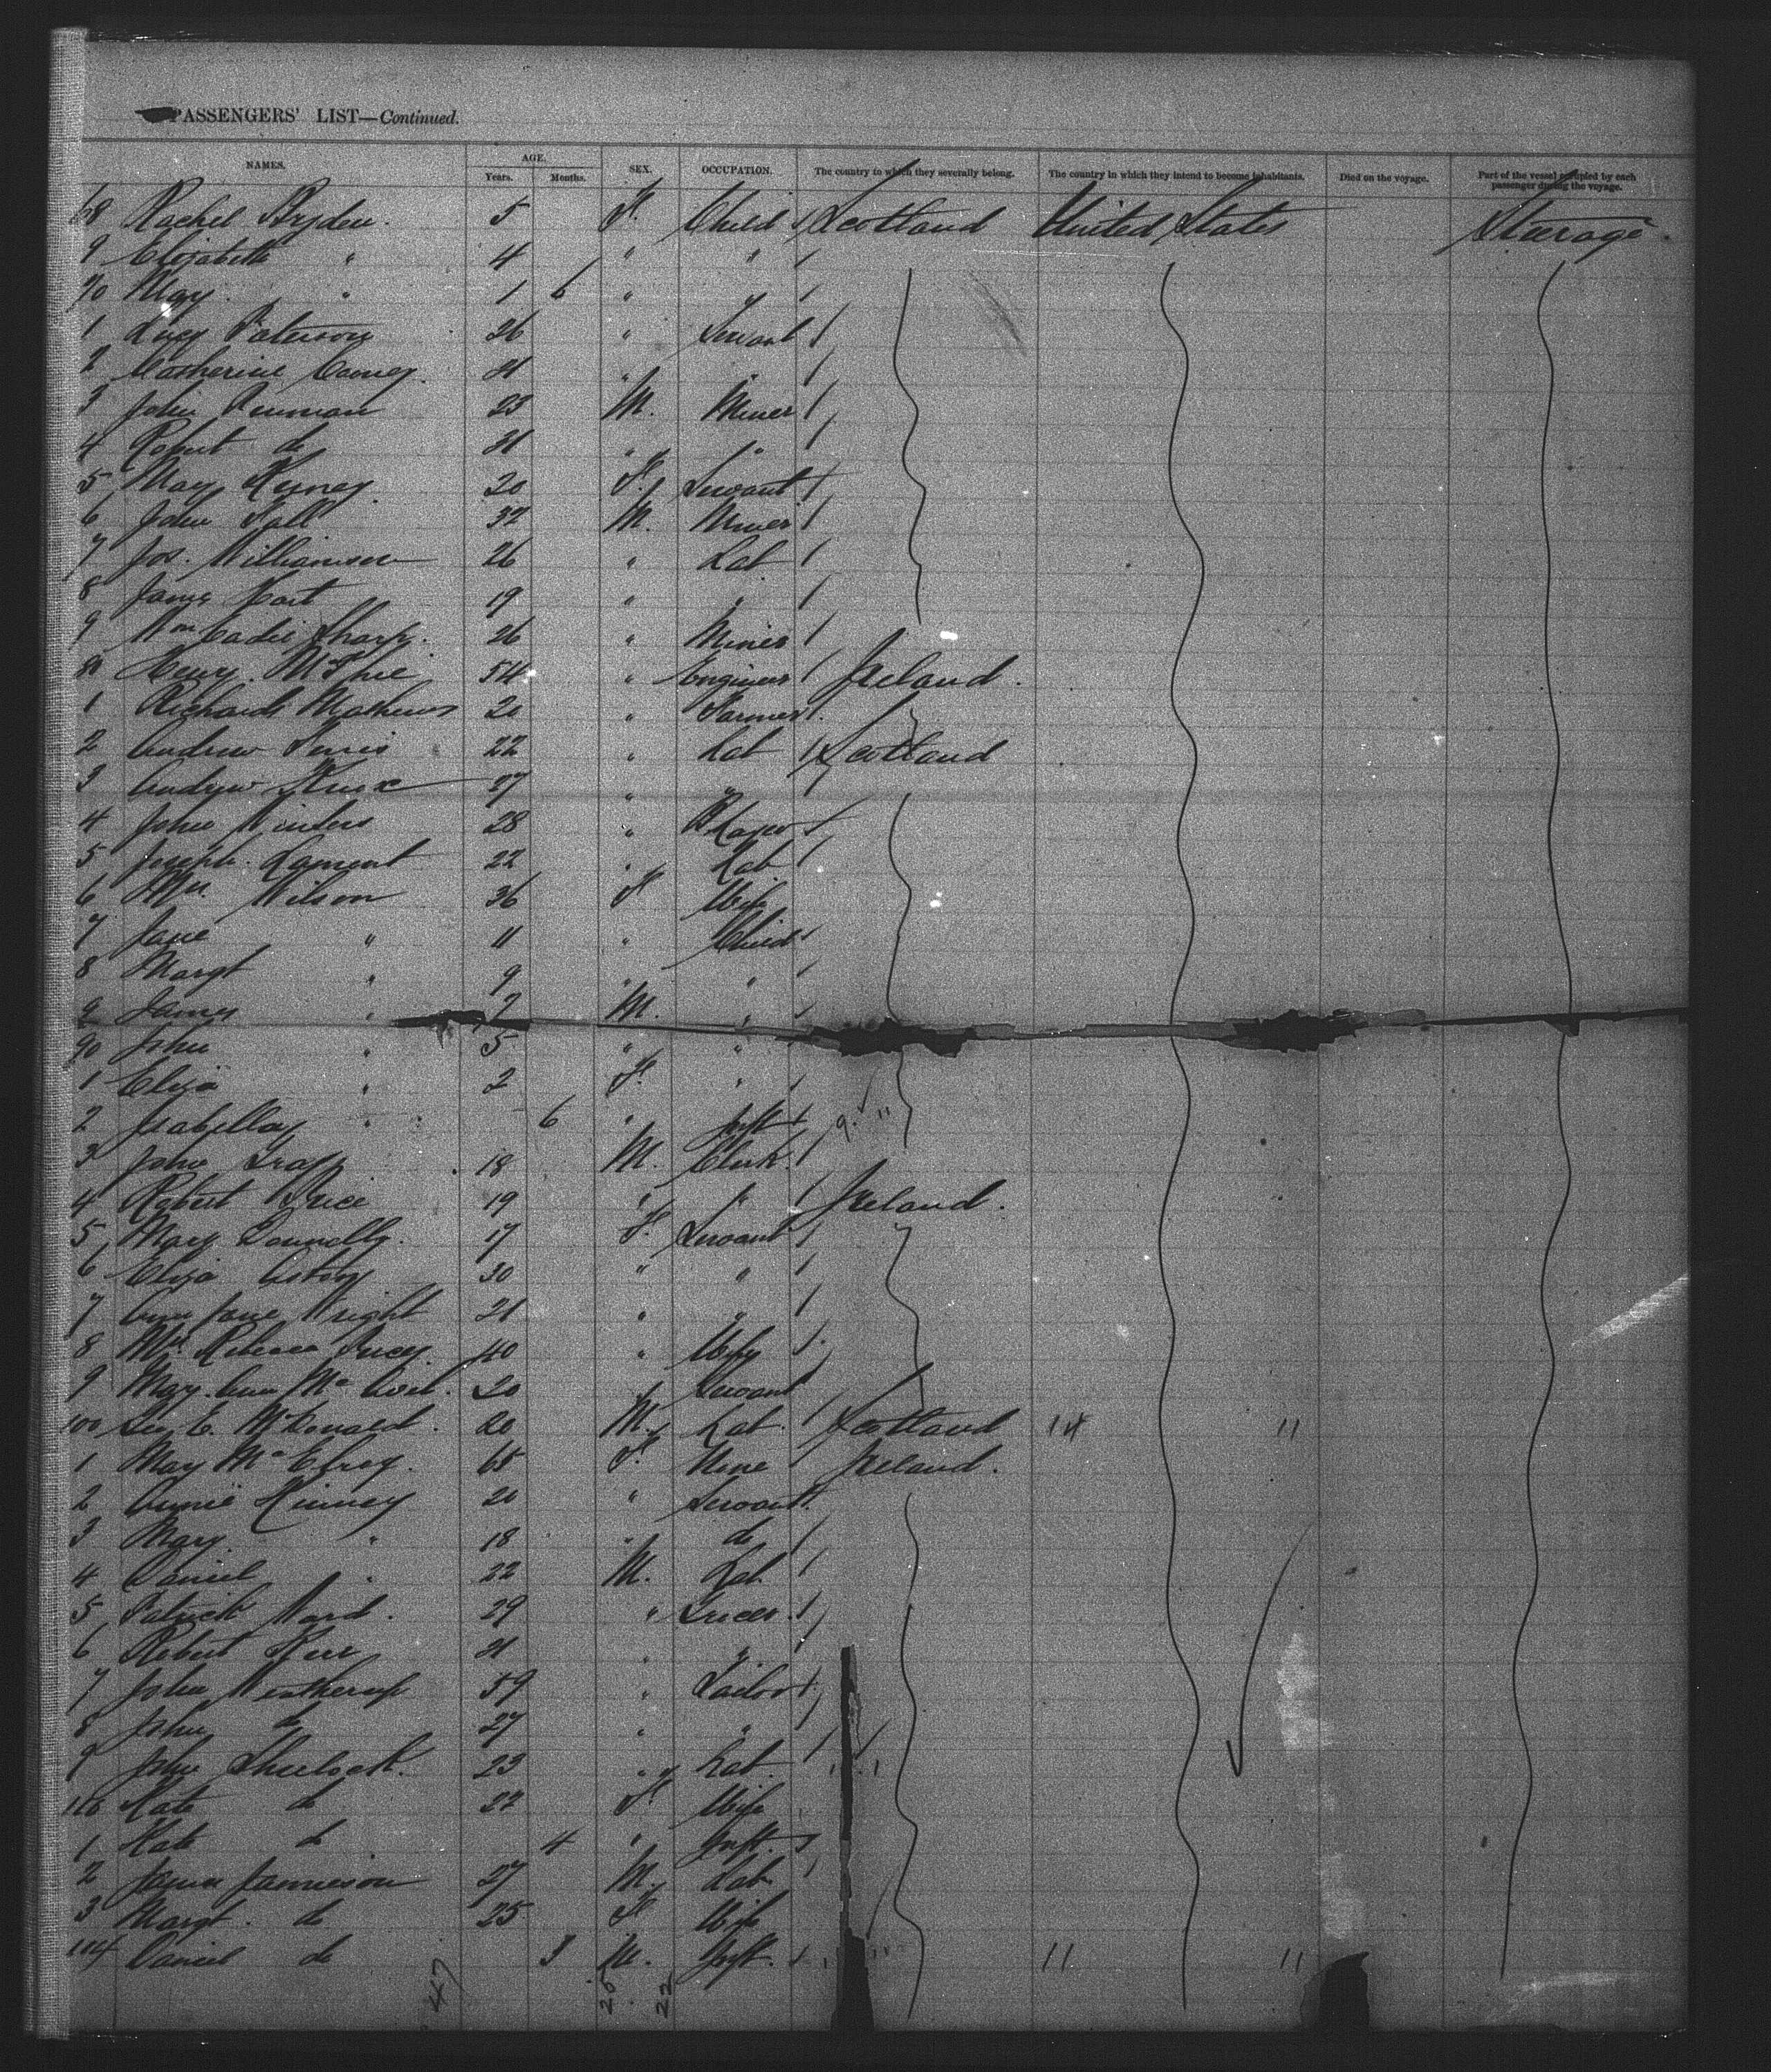 PASSENGERS' LIST—Continued.
NAMES. AGE. Years. Months. SEX. OCCUPATION. The country to which they severally belong. The country in which they intend to become inhabitants. Died on the voyage. Part of the vessel occupied by each passenger during the voyage.
68 Rachel Bryden. 5 F. Child Scotland United States Steerage.
9 Elizabeth " 4 " "
70 May " 1 6 " "
1 Lucy Paterson 26 " Servant
2 Catherine 21 " "
3 John 23 M. Miner
4 Robert do 21 " "
5 Mary 20 F. Servant
6 John 32 M. Miner
7 Jos. Williamson 26 " Lab
8 James 19 " "
9 Wm Cadie Sharp. 26 " Miner
80 Henry 54 " Engineer Ireland.
1 Richard Mathews 20 " Farmer
2 Andrew 22 " Lab Scotland
3 Andrew 27 " "
4 John Winters 28 "
5 Joseph Lament 22 " Lab
6 Mrs. Wilson 36 F Wife
7 Jane " 11 " Child
8 Margt " 9 " "
9 James " 7 M. "
90 John " 5 " "
1 Eliza " 2 F. " 
2 Isabella " 6 " Inft 9. "
3 John 18 M. Clerk.
4 Robert Price 19 " " Ireland.
5 Mary Donnelly. 17 F. Servant
6 Eliza 30 " "
7 Ann Jane Wright 21 " "
8 Mrs. Rebecca 40 " Wife
9 Mary Ann 20 " Servant
100 E. McDonald. 20 M. Lab. Scotland 14 11
1 May 65 F. None Ireland.
2 Annie Kinney 20 " Servant
3 Mary " 18 " do
4 Daniel " 22 M. Lab.
5 Patrick Ward. 29 "
6 Robert Kerr 21 " "
7 John 59 " Tailor
8 John do 27 " "
9 John 23 " Lab.
110 Kate do 22 F. Wife
1 Kate do 4 " Inft.
2 James Jamieson 27 M. Lab
3 Margt. do 25 F Wife
114 Daniel do 3 M. Inft. 11 11
47 25 22